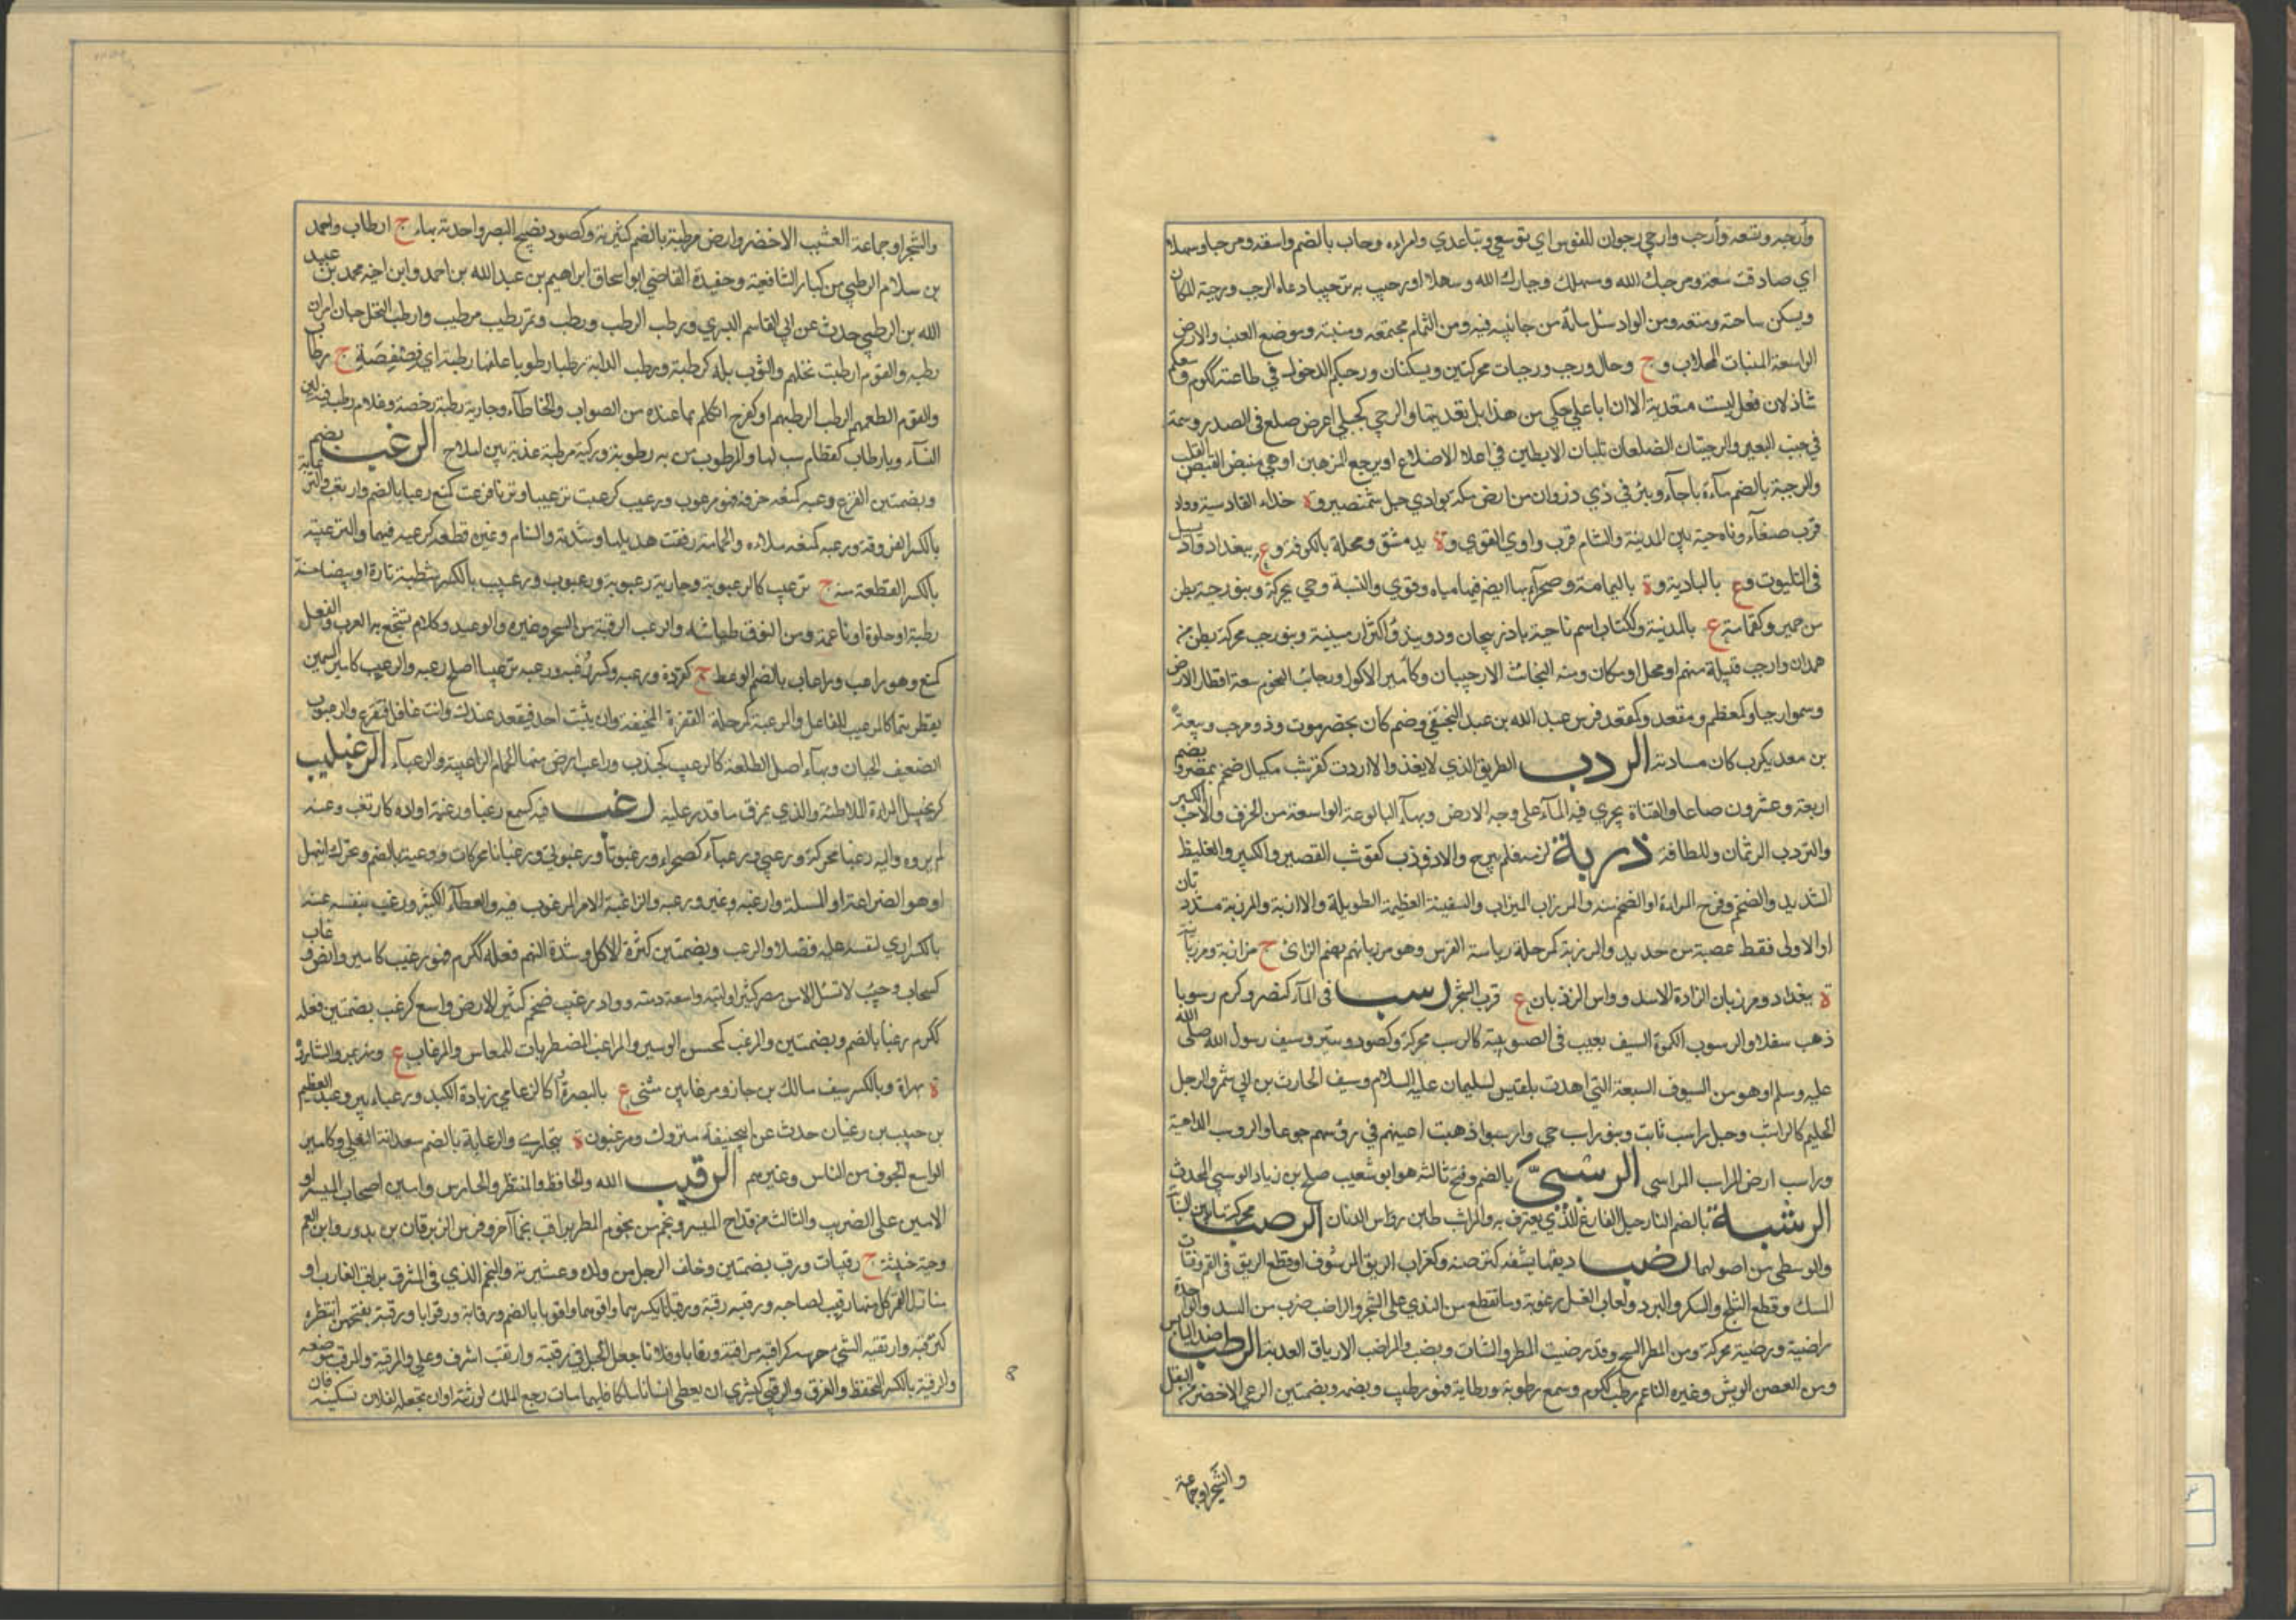 وأرحبه وسعه وأرحب وارحبي زجران للفرس اي توسعي وتباعدي وامراءه رحاب بالضم واسعة ومرحبا وسهلا
اي صادفت سعة ومرحبك الله وسهلك وحيارك الله وسهلا او رحب به ترحيبا دعاه الي الرحب ورحبة المكان
ويسكن ساحته ومتسعه ومن الواد مسيل مائه من جانبيه فيه ومن الثمام مجتمعه ومنبته وموضع العنب والارض
الواسعة المنبات المحلاب و ج رحاب ورحب ورحبات محركتين ويسكنان ورحبكم الدخول في طاعته ككرم وسعكم
شاذ لان فعل ليست متعدية الا ان ابا علي حكي عن هذيل تعديتها والرحبي كحبلي اعرض ضلع في الصدر وسمة
في جنب البعير والرحبيان الضلعان تليان الابطين في اعلا الاضلاع او مرجع المرفقين او هي منبض القلب
والرحبة بالضم ماءة باجاء وبئر في ذي ذروان من ارض مكة بوادي جبل شمنصير و ة حذاء القادسية وواد
قرب صنعاء وناحية بين المدينة والشام قرب وادي القري و ة بدمشق ومحلة بالكوفة و ع ببغداد وواد يسيل
في الثلبوت و ع بالبادية و ة باليمامة وصحراء بها ايضا فيها مياه وقري والنسبة رحبي محركة وبنو رحبة بطن
من حمير وكقمامة ع بالمدينة وككتاب اسم ناحية باذربيجان ودربند واكثر ارمينية وبنو رحب محركة بطن من
همدان وارحب قبيلة منهم او محل او مكان ومنه النجائب الارحبيات وكامير الاكول ورحائب التخوم سعة اقطار الارض
وسموا رحبا وكمعظم ومقعد وكمقعد فرس عبد الله بن عبد الحنفي وصنم كان بحضرموت وذو مرحب ربيعة
بن معديكرب كان سادنه الردب الطريق الذي لا ينفذ والاردب كقرشب مكيال ضخم بمصر ويضم
اربعة وعشرون صاعا والقناة يجري فيه الماء علي وجه الارض وبهاء البالوعة الواسعة من الخزف والاجر الكبير
والتردب الرئمان واللطافة رزبة لزمه فلم يبرح والارزب كقرشب القصير والكبير والغليظ
الشديد والضخم وفرج المراءة او الضخم منه والمرزاب الميزاب والسفينة العظيمة الطويلة والارزبة والمرزبة مشددتان
او الاولي فقط عصية من حديد والمرزبة كمرحلة رياسة الفرس وهو مرزبانهم بضم الزاي ج مرازبة ومرزبانية
ة ببغداد ومرزبان الزارة الاسد وراس المرزبان ع قرب الشحر رسب في الماء كنصر وكرم رسوبا
ذهب سفلا والرسوب الكمرة السيف يغيب في الضريبة كالرسب محركة وكصرد ومنبر وسيف رسول الله صلي الله
عليه وسلم او هو من السيوف السبعة التي اهدت بلقيس لسليمان عليه السلام وسيف الحارث بن ابي شمر والرجل
الحليم كالراسب وجبل راسب ثابت وبنو راسب حي وارسبوا ذهبت اعينهم في رؤسهم جوعا والروسب الداهية
وراسب ارض المراسب المراسي الرشبي بالضم وفتح ثالثه هو ابو شعيب صلح بن زياد السوسي المحدث
الرشبة بالضم النارجيل الفارغ الذي يغترف به والمراشب طين رؤاس الدنان الرصب محركة ما بين السبابة
والوسطي من اصولهما رضب ريقها يرشفه كترضبه وكغراب الريق المرشوف او قطع الريق في الفم وفتات
المسك وقطع الثلج والسكر والبرد ولعاب العسل ورغوته وما تقطع من الندي علي الشجر والراضب ضرب من السدر والواحدة
راضبة ورضبة محركة ومن المطر السح وقد رضب المطر والشاة ربضت والمراضب الارياق العذبة الرطب ضد اليابس
ومن الغصن والريش وغيره الناعم رطب ككرم وسمع رطوبة ورطابة فهو رطيب وبضمة وبضمتين الرعي الاخضر من البقل
والشجر او جماعة
والشجر او جماعة العشب الاخضر وارض مرطبة بالضم كثيرته وكصرد نضيج البسر واحدته بهاء ج ارطاب واحمد
بن سلام الرطبي من كبار الشافعية وحفيده القاضي ابو اسحاق ابراهيم بن عبد الله بن احمد وابن اخيه محمد بن عبيد
الله بن الرطبي حدث عن ابي القاسم البسري ورطب الرطب ورطب وتمر رطيب مرطب وارطب النخل حان اوان
رطبه والقوم ارطب نخلهم والثوب بله كرطبه ورطب الدابة رطبا رطوبا علفها رطبة اي فصفصة ج رطاب
والقوم اطعمهم الرطب كرطبهم او كفرح تكلم بما عنده من الصواب والخطاء وجارية رطبة رخصة وغلام رطب فيه لين
النساء ويا رطاب كقطام سب لها والمرطوب من به رطوبة وركية مرطبة عذبة بين املاح الرعب بضم
وبضمتين الفزع رعبه كمنعه خوفه فهو مرعوب ورعيب كرعبه ترعيبا وترعابا فرعب كمنع رعبا بالضم وارتعب والترعابة
بالكسر الفروقة ورعبه كمنعه ملاءه والحمامة رفعت هديلها وشدته والسنام وغيره قطعه كرعبه فيهما والترعيبة
بالكسر القطعة منه ج ترعيب كالرعبوبة وجارية رعبوبة ورعبوب ورعبيب بالكسر شطبة تارة او بيضاء حسنة
رطبة او حلوة او ناعمة ومن النوق طياشة والرعب الرقية من السحر وغيره والوعيد وكلام تسجع به العرب والفعل
كمنع وهو راعب ورعاب بالضم الوعظ ج كقردة ورعبه وكسر رعبه ورعبه ترعيبا اصلح رعبه والرعيب كامير السمين
يقطر دسما كالمرعب للفاعل والمرعبة كرحلة القفزة المخيفة وان يثب احد فيقعد عندك وانت غافل فتفزع والرعبوب
الضعيف الجبان وبهاء اصل الطلعة كالرعبب كجندب وراعب ارض منها الحمام الراعبية والرعباء الرعبليب
كزنجبيل المراءة الملاطفة والذي يمزق ما قدر عليه رغب فيه كسمع رغبا ورغبة اراده كارتغب وعنه
لم يرده واليه رغبا محركة ورغبي ورغباء كصحراء ورغبوتا ورغبوتي ورغبانا محركات ورغبة بالضم وتحرك ابتهل
او هو الضراعة او المسئلة وارغبه وغيره ورغبه والرغيبة الامر المرغوب فيه والعطاء الكثير ورغب بنفسه عنه
بالكسر اي لنفسه عليه فضلا والرغب وبضمتين كثرة الاكل وشدة النهم فعله ككرم فهو رغيب كامير وارض رغاب
كسحاب وجنب لا تسيل الا من مطر كثير او لينة واسعة دمثة وواد رغيب ضخم كثير الاخذ واسع كرغب بضمتين فعله
ككرم رغبا بالضم وبضمتين والمرغب كمحسن الموسر والمراغب المضطربات للمعاش والمرغاب ع
ة بهراة وبالكسر سيف مالك بن حماز ومرغابين مثني ع بالبصرة والرغامي زيادة الكبد ورغباء بير وعبد العظيم
بن حبيب بن رغبان حدث عن ابي حنيفة متروك ومرغبون ة ببخاري والرغابة بالضم سعدانة النعل وكامير
الواسع الجوف من الناس وغيرهم الرقيب الله والحافظ والمنتظر والحارس وامين اصحاب الميسر او
الامين علي الضريب والثالث من قداح الميسر ونجم من نجوم المطر يراقب نجما آخر وفرس الزبرقان بن بدر وابن العم
وحية خبيثة ج رقيبات ورقب بضمتين وخلف الرجل من ولده وعشيرته والنجم الذي في المشرق يراقب الغارب او
منازل القمر كل منها رقيب لصاحبه ورقبه رقبة ورقبانا بكسرهما ورقوبا بالضم ورقابة ورقوبا ورقبة بفتحهن انتظره
كترقبه وارتقبه الشي حرسه كراقبه مراقبة ورقابا وفلانا جعل الحبل في رقبته وارتقب اشرف وعلي والمرقبة والمرقب موضعه
والرقبة بالكسر التحفظ والفرق والرقبي كبشري ان يعطي انسانا ملكا فايهما مات رجع الملك لورثته او ان يجعله لفلان يسكنه فان